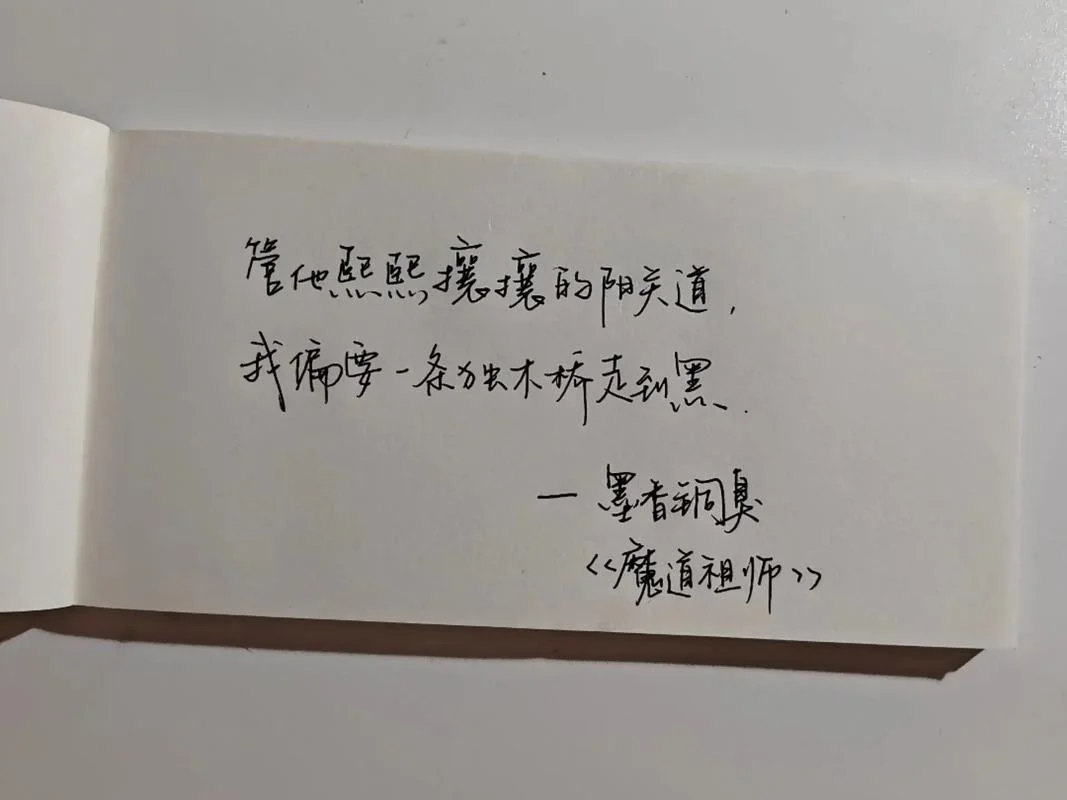 管他熙熙攘攘的阳关道,
我偏要一条独木桥走到黑.
— 墨香铜臭
<<魔道祖师>>